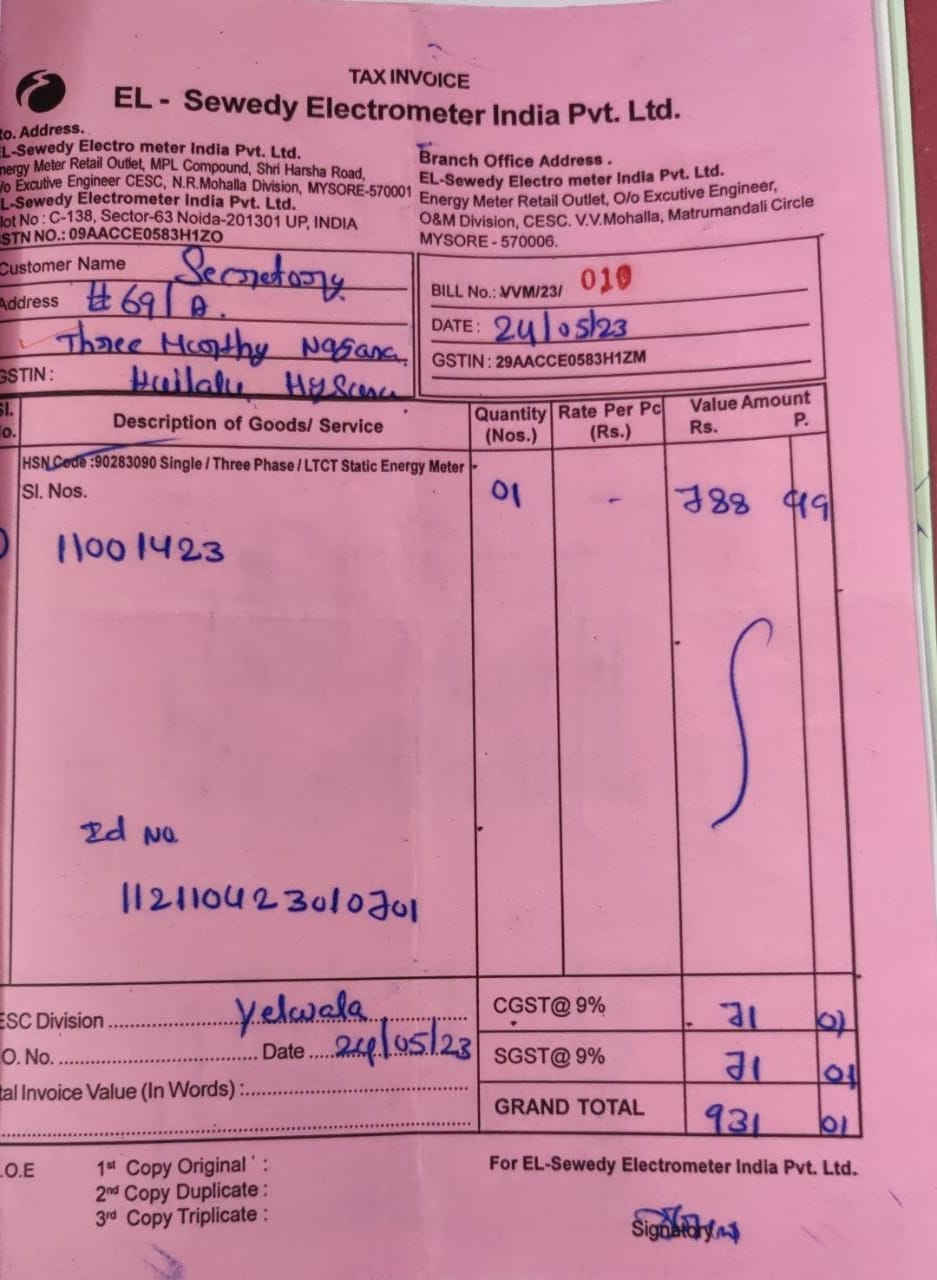 TAX INVOICE
EL - Sewedy Electrometer India Pvt. Ltd.
o. Address.
L-Sewedy Electro meter India Pvt. Ltd.
nergy Meter Retail Outlet, MPL Compound, Shri Harsha Road,
/o Excutive Engineer CESC, N.R.Mohalla Division, MYSORE-570001
L-Sewedy Electrometer India Pvt. Ltd.
lot No : C-138, Sector-63 Noida-201301 UP, INDIA
STN NO.: 09AACCE0583H1ZO
Branch Office Address .
EL-Sewedy Electro meter India Pvt. Ltd.
Energy Meter Retail Outlet, O/o Excutive Engineer,
O&M Division, CESC. V.V.Mohalla, Matrumandali Circle
MYSORE - 570006.
Customer Name Secretary
Address # 69/A.
Three Moorthy Nagara
GSTIN :
BILL No.: VVM/23/ 010
DATE : 24/05/23
GSTIN : 29AACCE0583H1ZM
Sl. o. Description of Goods/ Service Quantity (Nos.) Rate Per Pc (Rs.) Value Amount Rs. P.
HSN Code :90283090 Single / Three Phase / LTCT Static Energy Meter
Sl. Nos. 01 - 788 99
11001423
Id No.
112110423010701
ESC Division Yelwala CGST@ 9% 71 01
O. No. Date 24/05/23 SGST@ 9% 71 01
tal Invoice Value (In Words) :
GRAND TOTAL 931 01
.O.E 1st Copy Original :
2nd Copy Duplicate :
3rd Copy Triplicate :
For EL-Sewedy Electrometer India Pvt. Ltd.
Signatory